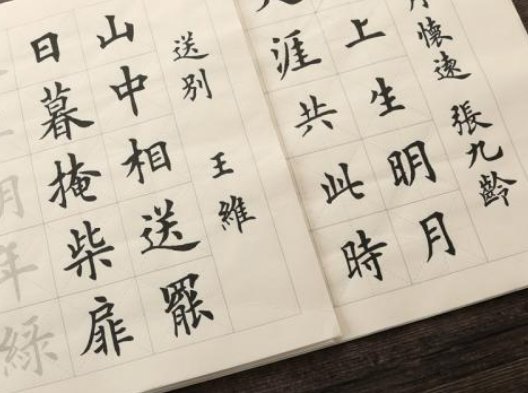 月懷遠 張九齡
上生明月
天涯共此時
送別 王維
山中相送罷
日暮掩柴扉
明年綠